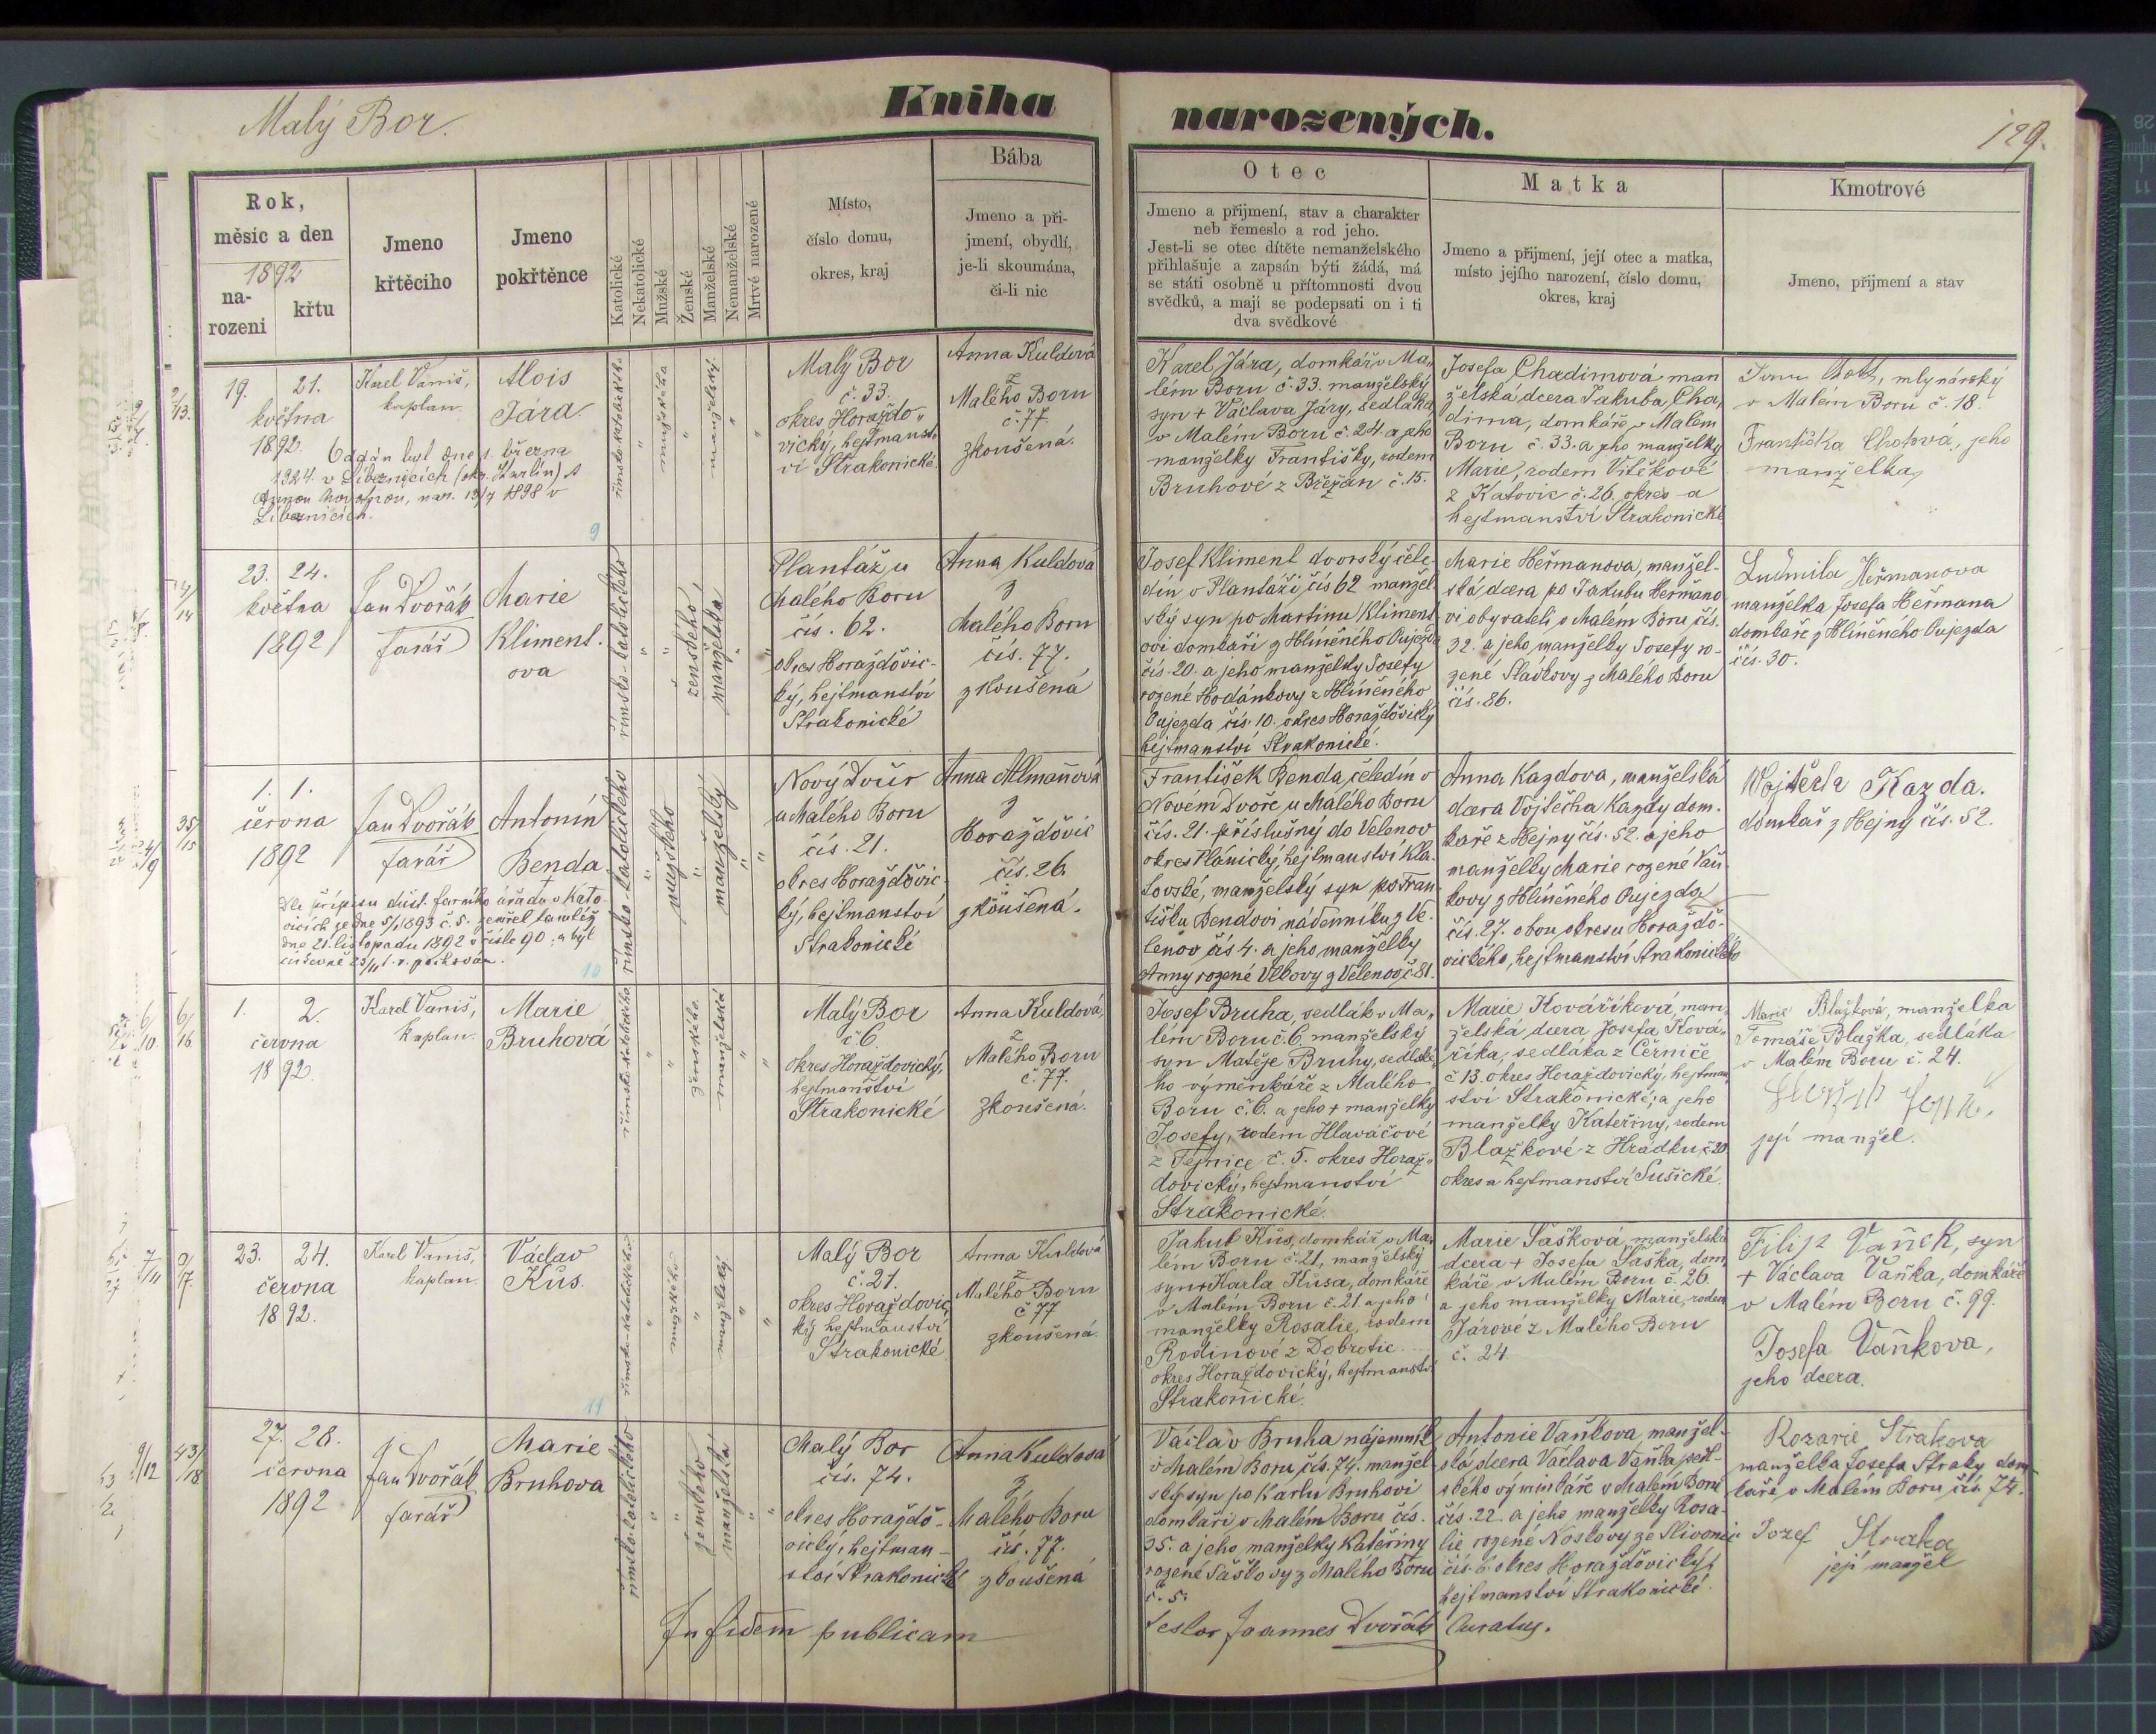 Malý Bor.
Kniha narozených.
129.
Rok,
měsíc a den
1892
na-
rození
křtu
Jmeno
křtěcího
Jmeno
pokřtěnce
Katolické
Nekatolické
Mužské
Ženské
Manželské
Nemanželské
Mrtvé narozené
Místo,
číslo domu,
okres, kraj
Bába
Jmeno a při-
jmení, obydlí,
je-li skoumána,
či-li nic
Otec
Jmeno a přijmení, stav a charakter
neb řemeslo a rod jeho.
Jest-li se otec dítěte nemanželského
přihlašuje a zapsán býti žádá, má
se státi osobně u přítomnosti dvou
svědků, a mají se podepsati on i ti
dva svědkové
Matka
Jmeno a přijmení, její otec a matka,
místo jejího narození, číslo domu,
okres, kraj
Kmotrové
Jmeno, přijmení a stav
2/13.
19. 21.
května
1892.
Karel Vaniš,
kaplan.
Alois
Jára.
Oddán byl dne 1. března
1924 v Líbeznicích (okr. Karlín) s
nar. 13/7 1898 v
Líbeznicích.
9
římsko-katolického
"
mužského
"
manželský
"
"
Malý Bor
č. 33.
okres Horažďo-
vický, hejtmanst-
ví Strakonické.
Anna Kuldová
z
Malého Boru
č. 77.
zkoušená.
Karel Jára, domkář v Ma-
lém Boru č. 33. manželský
syn + Václava Járy, sedláka
v Malém Boru č. 24. a jeho
manželky Františky, rodem
Bruhové z Břežan č. 15.
Josefa Chadimová man
želská dcera Jakuba Cha-
dima, domkáře v Malém
Boru č. 33. a jeho manželky
Marie, rodem Vítečkové
z Katovic č. 26. okres a
hejtmanství Strakonické
mlynářský
v Malém Boru č. 18.
Františka jeho
manželka
14
23. 24.
května
1892
Jan Dvořák
farář
Marie
Kliment-
ova
římsko-katolického
"
"
ženského
manželska
"
"
Plantáž u
Malého Boru
čís. 62.
okres Horažďovic-
ký, hejtmanství
Strakonické
Anna Kuldova
z
Malého Boru
čís. 77.
zkoušená
Josef Kliment dvorský čele-
dín v Plantáži čís 62 manžel
ský syn po Martinu Kliment
ovi domkáři z Hlíněného Oujezda
čís. 20. a jeho manželky Josefy
rozené Hodánkovy z Hlíněného
Oujezda čís. 10. okres Horažďovický
hejtmanství Strakonické.
Marie Heřmanova, manžel-
ská dcera po Jakubu Heřmano
vi obyvateli v Malém Boru čís.
32. a jeho manželky Josefy ro-
zené Sladkovy z Malého Boru
čís. 86.
Ludmila Heřmanova
manželka Josefa Heřmana
domkáře z Hlíněného Oujezda
čís. 30.
35/15
1. 1.
června
1892
Jan Dvořák
farář
Antonín
Benda
Dle přípisu důst. farního úřadu v Kato-
vicích ze dne 5/1 1893 č. 5. zemřel tamtéž
dne 21. listopadu 1892 v čísle 90. a byl
církevně 23/11 t. r. pochován.
10
římsko-katolického
"
mužského
"
manželský
"
"
Nový Dvůr
u Malého Boru
čís. 21.
okres Horažďovic-
ký, hejtmanství
Strakonické
Anna Allmanňová
z
Horažďovic
čís. 26.
zkoušená.
František Benda, čeledín v
Novém Dvoře u Malého Boru
čís. 21. příslušný do Velenov
okres Plánický, hejtmanství Kla-
tovské, manželský syn po Fran-
tišku Bendovi nádenníku z Ve-
lenov čís 4. a jeho manželky
Anny rozené Vlkovy z Velenov č 81.
Anna Kazdova, manželská
dcera Vojtěcha Kazdy dom-
káře z Hejný čís. 52. a jeho
manželky Marie rozené Vaň-
kovy z Hlíněného Oujezda
čís. 27. obou okresu Horažďo-
vického, hejtmanství Strakonického
Wojtěch Kazda.
domkař z Hejný čís. 52.
6/16
6/10.
1. 2.
června
1892.
Karel Vaniš,
kaplan.
Marie
Bruhová
římsko-katolického
"
"
ženského
manželská
"
"
Malý Bor
č. 6.
okres Horažďovický,
hejtmanství
Strakonické
Anna Kuldová,
z
Malého Boru
č. 77.
zkoušená.
Josef Bruha, sedlák v Ma-
lém Boru č. 6. manželský
syn Matěje Bruhy, sedlské-
ho výměnkáře z Malého
Boru č. 6. a jeho + manželky
Josefy, rodem Hlaváčové
z Tejnice č. 5. okres Horaž-
ďovický, hejtmanství
Strakonické.
Marie Kováříková, man-
želská dcera Josefa Ková-
říka, sedláka z Černiče
č 13. okres Horažďovický, hejtman-
ství Strakonické, a jeho
manželky Kateřiny, rodem
Blažkové z Hrádku, č 20.
okres a hejtmanství Sušické.
Marie Blažková, manželka
Tomáše Blažka, sedláka
v Malém Boru č. 24.
její manžel.
9/17.
7/11
23. 24.
června
1892.
Karel Vaniš,
kaplan.
Václav
Kůs.
11
římsko-katolického
"
mužského
"
manželský
"
"
Malý Bor
č. 21.
okres Horažďovic-
ký hejtmanství
Strakonické.
Anna Kuldová
z
Malého Boru
č 77
zkoušená.
Jakub Kůs, domkář v Ma-
lém Boru č. 21, manželský
syn + Karla Kůsa, domkáře
v Malém Boru č. 21. a jeho
manželky Rosalie, rodem
Rodinové z Dobrotic
okres Horažďovický, hejtmanství
Strakonické.
Marie Sašková, manželská
dcera + Josefa Saška, dom-
káře v Malém Boru č. 26.
a jeho manželky Marie, rodem
Járové z Malého Boru
č. 24.
Filip Vaněk, syn
+ Václava Vaňka, domkáře
v Malém Boru č. 99.
Josefa Vaňkova,
jeho dcera.
43/18
9/12
27. 28.
června
1892
Jan Dvořák
farář
Marie
Bruhova
římsko-katolického
"
"
ženského
manželská
"
"
Malý Bor
čís. 74.
okres Horažďo-
vický, hejtman-
ství Strakonické
Anna Kuldova
z
Malého Boru
čís. 77.
zkoušená
Václav Bruha nájemník
v Malém Boru čís. 74. manžel
ský syn po Karlu Bruhovi
domkáři v Malém Boru čís.
35. a jeho manželky Kateřiny
rozené Saškovy z Malého Boru
č. 5.
Antonie Vaňkova, manžel-
ská dcera Václava Vaňka, sedl-
ského výminkáře v Malém Boru
čís. 22. a jeho manželky Rosa-
lie rozené Noskovy ze Slivonic
čís. 6. okres Horažďovický,
hejtmanství Strakonické.
Rozarie Strakova
manželka Josefa Straky dom-
káře v Malém Boru čís. 74.
Jozef Straka
její manžel
In fidem publicam
Testor Joannes Dvořák Curatus.